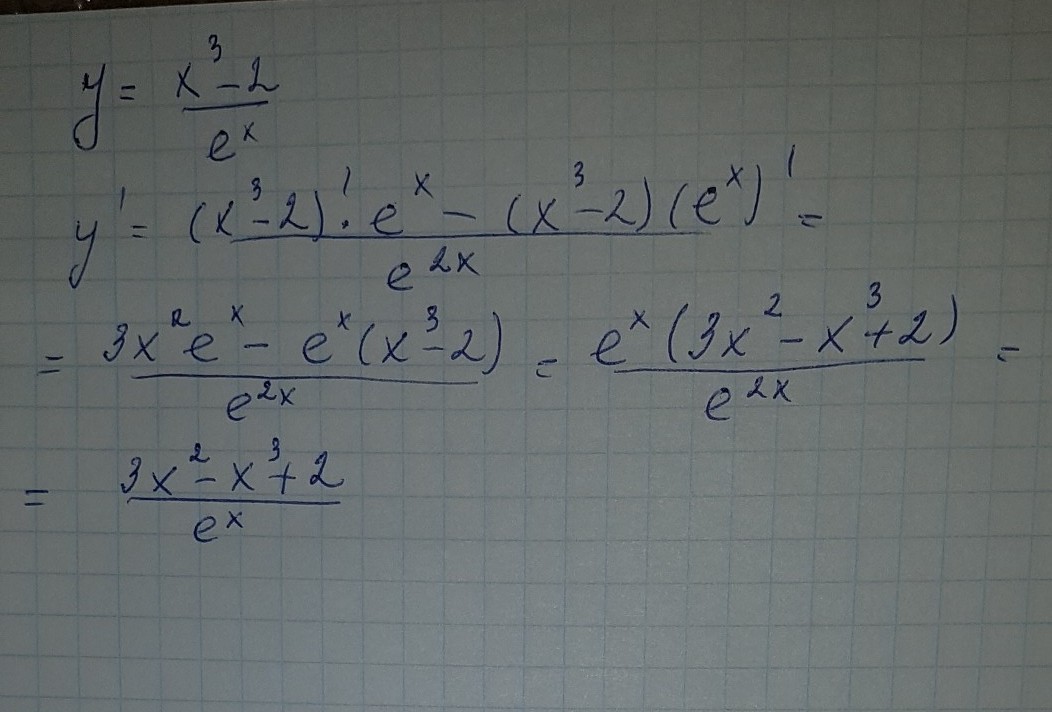 y = (x³ - 2) / eˣ
y' = ((x³ - 2)' · eˣ - (x³ - 2)(eˣ)') / e²ˣ =
= (3x²eˣ - eˣ(x³ - 2)) / e²ˣ = eˣ(3x² - x³ + 2) / e²ˣ =
= (3x² - x³ + 2) / eˣ